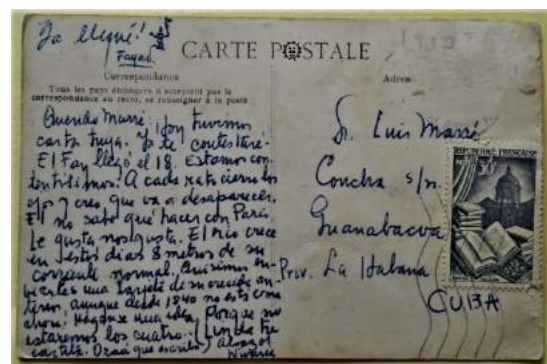 Ya llegué!
Fayad
CARTE POSTALE
Correspondance
Tous les pays étrangers n'acceptent pas la
correspondance au recto, se renseigner à la poste
Adresse
Querido Marré: Hoy tuvimos
carta tuya. Ya te contestaré.
El Fay llegó el 18. Estamos con-
tentísimos. A cada rato cierro los
ojos y creo que va a desaparecer.
El no sabe qué hacer con París.
Le gusta nos gusta. El río crece
en estos días 8 metros de su
corriente normal. Quisimos en-
viarles una tarjeta de su crecida an-
terior, aunque desde 1840 no está como
ahora. Háganse una idea. Porque no
estaremos los cuatro.
carta. Ojalá que escribas) Abrazos
Sr. Luis Marré
Concha s/n.
Guanabacoa
Prov. La Habana
CUBA
REPUBLIQUE FRANÇAISE
30F